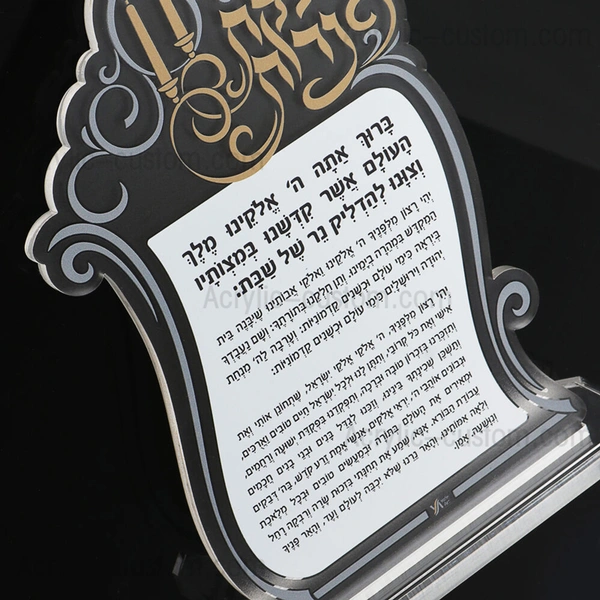 הדלקת
נרות
בָּרוּךְ אַתָּה ה' אֱלֹקֵינוּ מֶלֶךְ
הָעוֹלָם אֲשֶׁר קִדְּשָׁנוּ בְּמִצְוֹתָיו
וְצִוָּנוּ לְהַדְלִיק נֵר שֶׁל שַׁבָּת:
יְהִי רָצוֹן מִלְּפָנֶיךָ ה' אֱלֹקֵינוּ וֵאלֹקֵי אֲבוֹתֵינוּ שֶׁיִּבָּנֶה בֵּית
הַמִּקְדָּשׁ בִּמְהֵרָה בְיָמֵינוּ, וְתֵן חֶלְקֵנוּ בְּתוֹרָתֶךָ: וְשָׁם נַעֲבָדְךָ
בְּיִרְאָה כִּימֵי עוֹלָם וּכְשָׁנִים קַדְמוֹנִיּוֹת: וְעָרְבָה לַה' מִנְחַת
יְהוּדָה וִירוּשָׁלָיִם כִּימֵי עוֹלָם וּכְשָׁנִים קַדְמוֹנִיּוֹת:
יְהִי רָצוֹן מִלְּפָנֶיךָ, ה' אֱלֹקַי אֱלֹקֵי יִשְׂרָאֵל, שֶׁתְּחוֹנֵן אוֹתִי וְאֶת
אִישִׁי וְאֶת כָּל קְרוֹבַי, וְתִתֵּן לָנוּ וּלְכָל יִשְׂרָאֵל חַיִּים טוֹבִים וַאֲרֻכִּים,
וְתִזְכְּרֵנוּ בְּזִכְרוֹן טוֹבָה וּבְרָכָה, וְתִפְקְדֵנוּ בִּפְקֻדַּת יְשׁוּעָה וְרַחֲמִים,
וְתַשְׁכֵּן שְׁכִינָתְךָ בֵּינֵינוּ, וְזַכֵּנוּ לְגַדֵּל בָּנִים וּבְנֵי בָנִים חֲכָמִים
וּנְבוֹנִים אוֹהֲבֵי ה', יִרְאֵי אֱלֹקִים, אַנְשֵׁי אֱמֶת זֶרַע קֹדֶשׁ, בַּה' דְּבֵקִים
וּמְאִירִים אֶת הָעוֹלָם בַּתּוֹרָה וּבְמַעֲשִׂים טוֹבִים וּבְכָל מְלֶאכֶת
עֲבוֹדַת הַבּוֹרֵא. אָנָּא שְׁמַע אֶת תְּחִנָּתִי בִּזְכוּת שָׂרָה וְרִבְקָה רָחֵל
וְלֵאָה אִמּוֹתֵינוּ, וְהָאֵר נֵרֵנוּ שֶׁלֹּא יִכְבֶּה לְעוֹלָם וָעֶד, וְהָאֵר פָּנֶיךָ
וְנִוָּשֵׁעָה אָמֵן.
Acrylic-custom.com